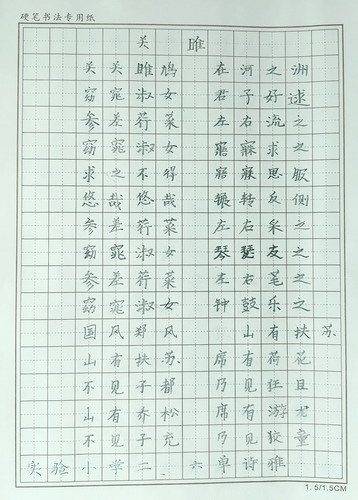 硬笔书法专用纸
关 雎
关关雎鸠 在河之洲
窈窕淑女 君子好逑
参差荇菜 左右流之
窈窕淑女 寤寐求之
求之不得 寤寐思服
悠哉悠哉 辗转反侧
参差荇菜 左右采之
窈窕淑女 琴瑟友之
参差荇菜 左右笔之
窈窕淑女 钟鼓乐之
国风郑风 山有扶苏
山有扶苏 席有荷花
不见子都 乃见狂且
山有乔松 席有游
不见子充 乃见狡童
实验小学二、六单诗雅
1.5/1.5CM